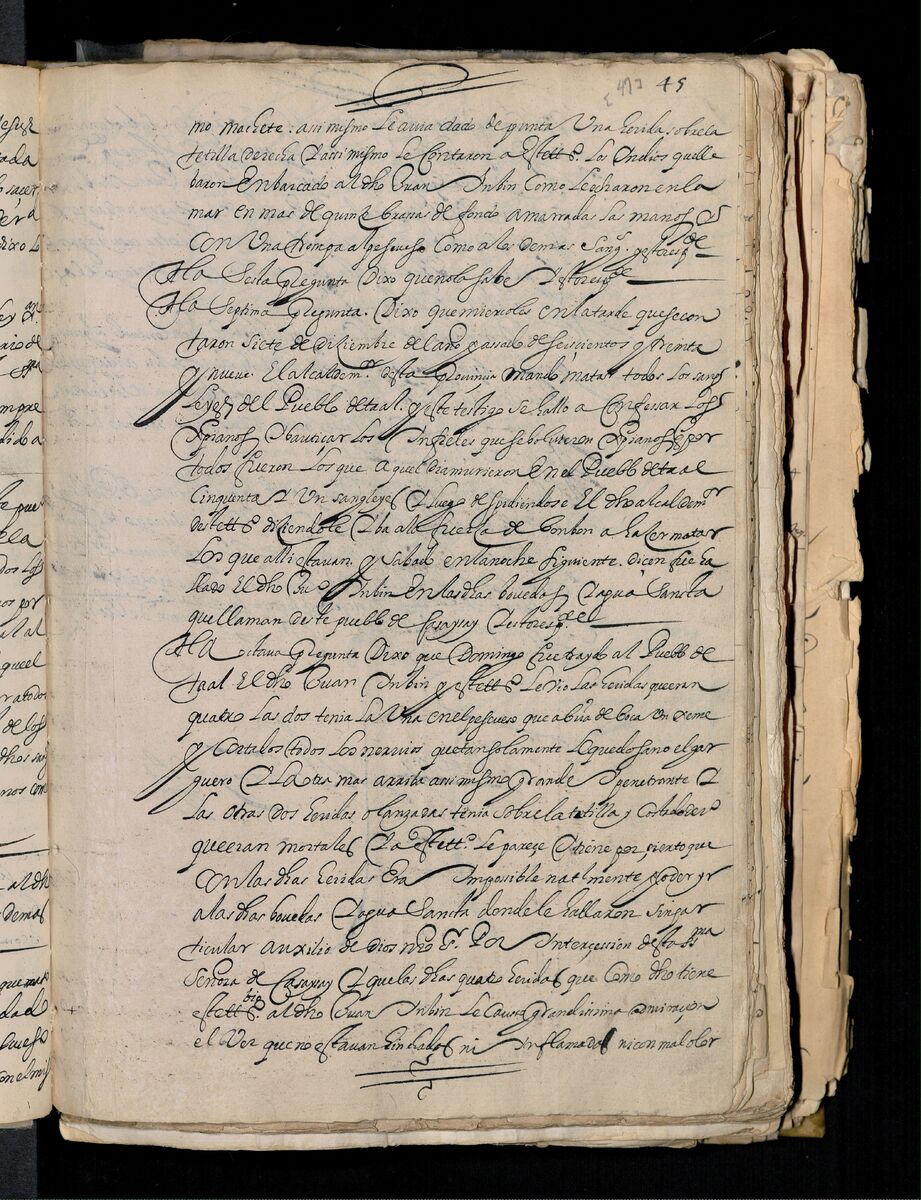 [47] 45
mo machete: asi mismo le avia dado de punta Una herida sobre la
tetilla derecha Y assi mismo le Contaron a este tt.º Los Indios que lle
baron Enbarcado al dho Juan Inbin Como Le echaron en la
mar en mas de quinze braças de fondo amarradas las manos Y
con Una trompa al pescueso Como a los demas Sang.s y esto resp.de
A la Sesta Pregunta Dixo que no la sabe Y esto resp.de
A la Septima Pregunta. Dixo que miercoles en la tarde que se con
taron Siete de Diziembre del año passado de seiscientos y treinta
y nueve. El alcalde m.or desta Provinçia mando matar todos Los sang
leyes del Pueblo de taal. y este testigo se hallo a Confesar Los
Xpianos Y bautiçar Los Infieles que se bolvieron Xpianos Y por
todos fueron Los que aquel dia murieron En el Pueblo de taal
Cinquenta Y Un sangleyes Y luego despidiendose El dho alcalde m.or
deste tt.º diziendole Yba a la fuerza de bonbon a hazer matar
Los que alli estavan. y Sabado en la noche siguiente. dicen fue ha
llado El dho Ju.º Inbin En las dhas bovedas Y agua Sancta
que llaman deste pueblo de Casaysay Y esto resp.de
A la octava Pregunta Dixo que Domingo fue traydo al Pueblo de
taal El dho Juan Inbin y este tt.º Le vio Las heridas que eran
quatro Las dos tenia La Una en el pescueso que abria de boca Un xeme
y Cortados todos Los nervios que tan solamente Le quedo sano el gar
guero Y La otra mas arriba assi mismo grande Y penetrante Y
Las otras dos heridas o lanzadas tenia sobre la tetilla y Costado der.º
que eran mortales Y a este tt.º Le pareçe Y tiene por çierto que
Con las dhas heridas Era Impossible natlmente poder yr
a las dhas bovedas Y agua Sancta donde le hallaron sin par
ticular auxilio de Dios nro S.r Por Interçession desta SS.ma
Señora de Casaysay Y que las dhas quatro heridas que Como dho tiene
este tt.º bio al dho Juan Inbin Le Causo grandissima admiraçion
el Ver que no estavan hinchadas ni Inflamadas ni con mal olor